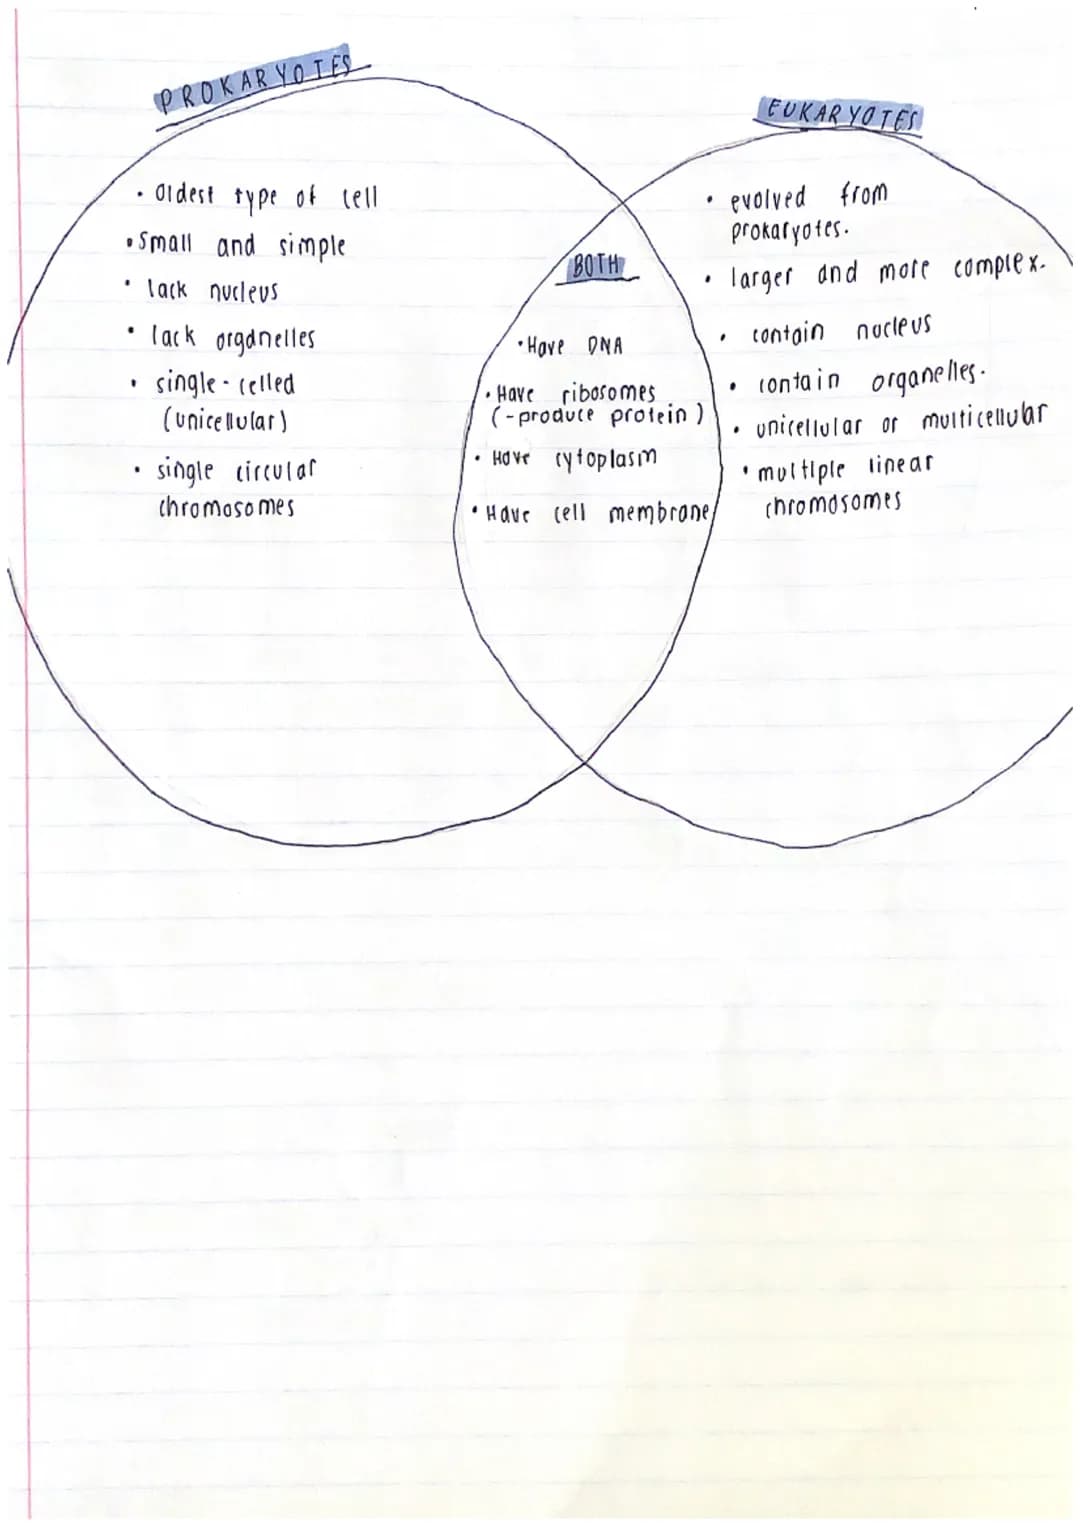 PROKARYOTES
• Oldest type of cell
• Small and simple
• lack nucleus
• lack organelles
• single-celled
(unicellular)
• single circular
chromosomes
BOTH
• Have DNA
• Have ribosomes
(-produce protein)
• Have cytoplasm
• Have cell membrane
EUKARYOTES
• evolved from
prokaryotes.
• larger and more complex.
• contain nucleus
• contain organelles.
• unicellular or multicellular
• multiple linear
chromosomes